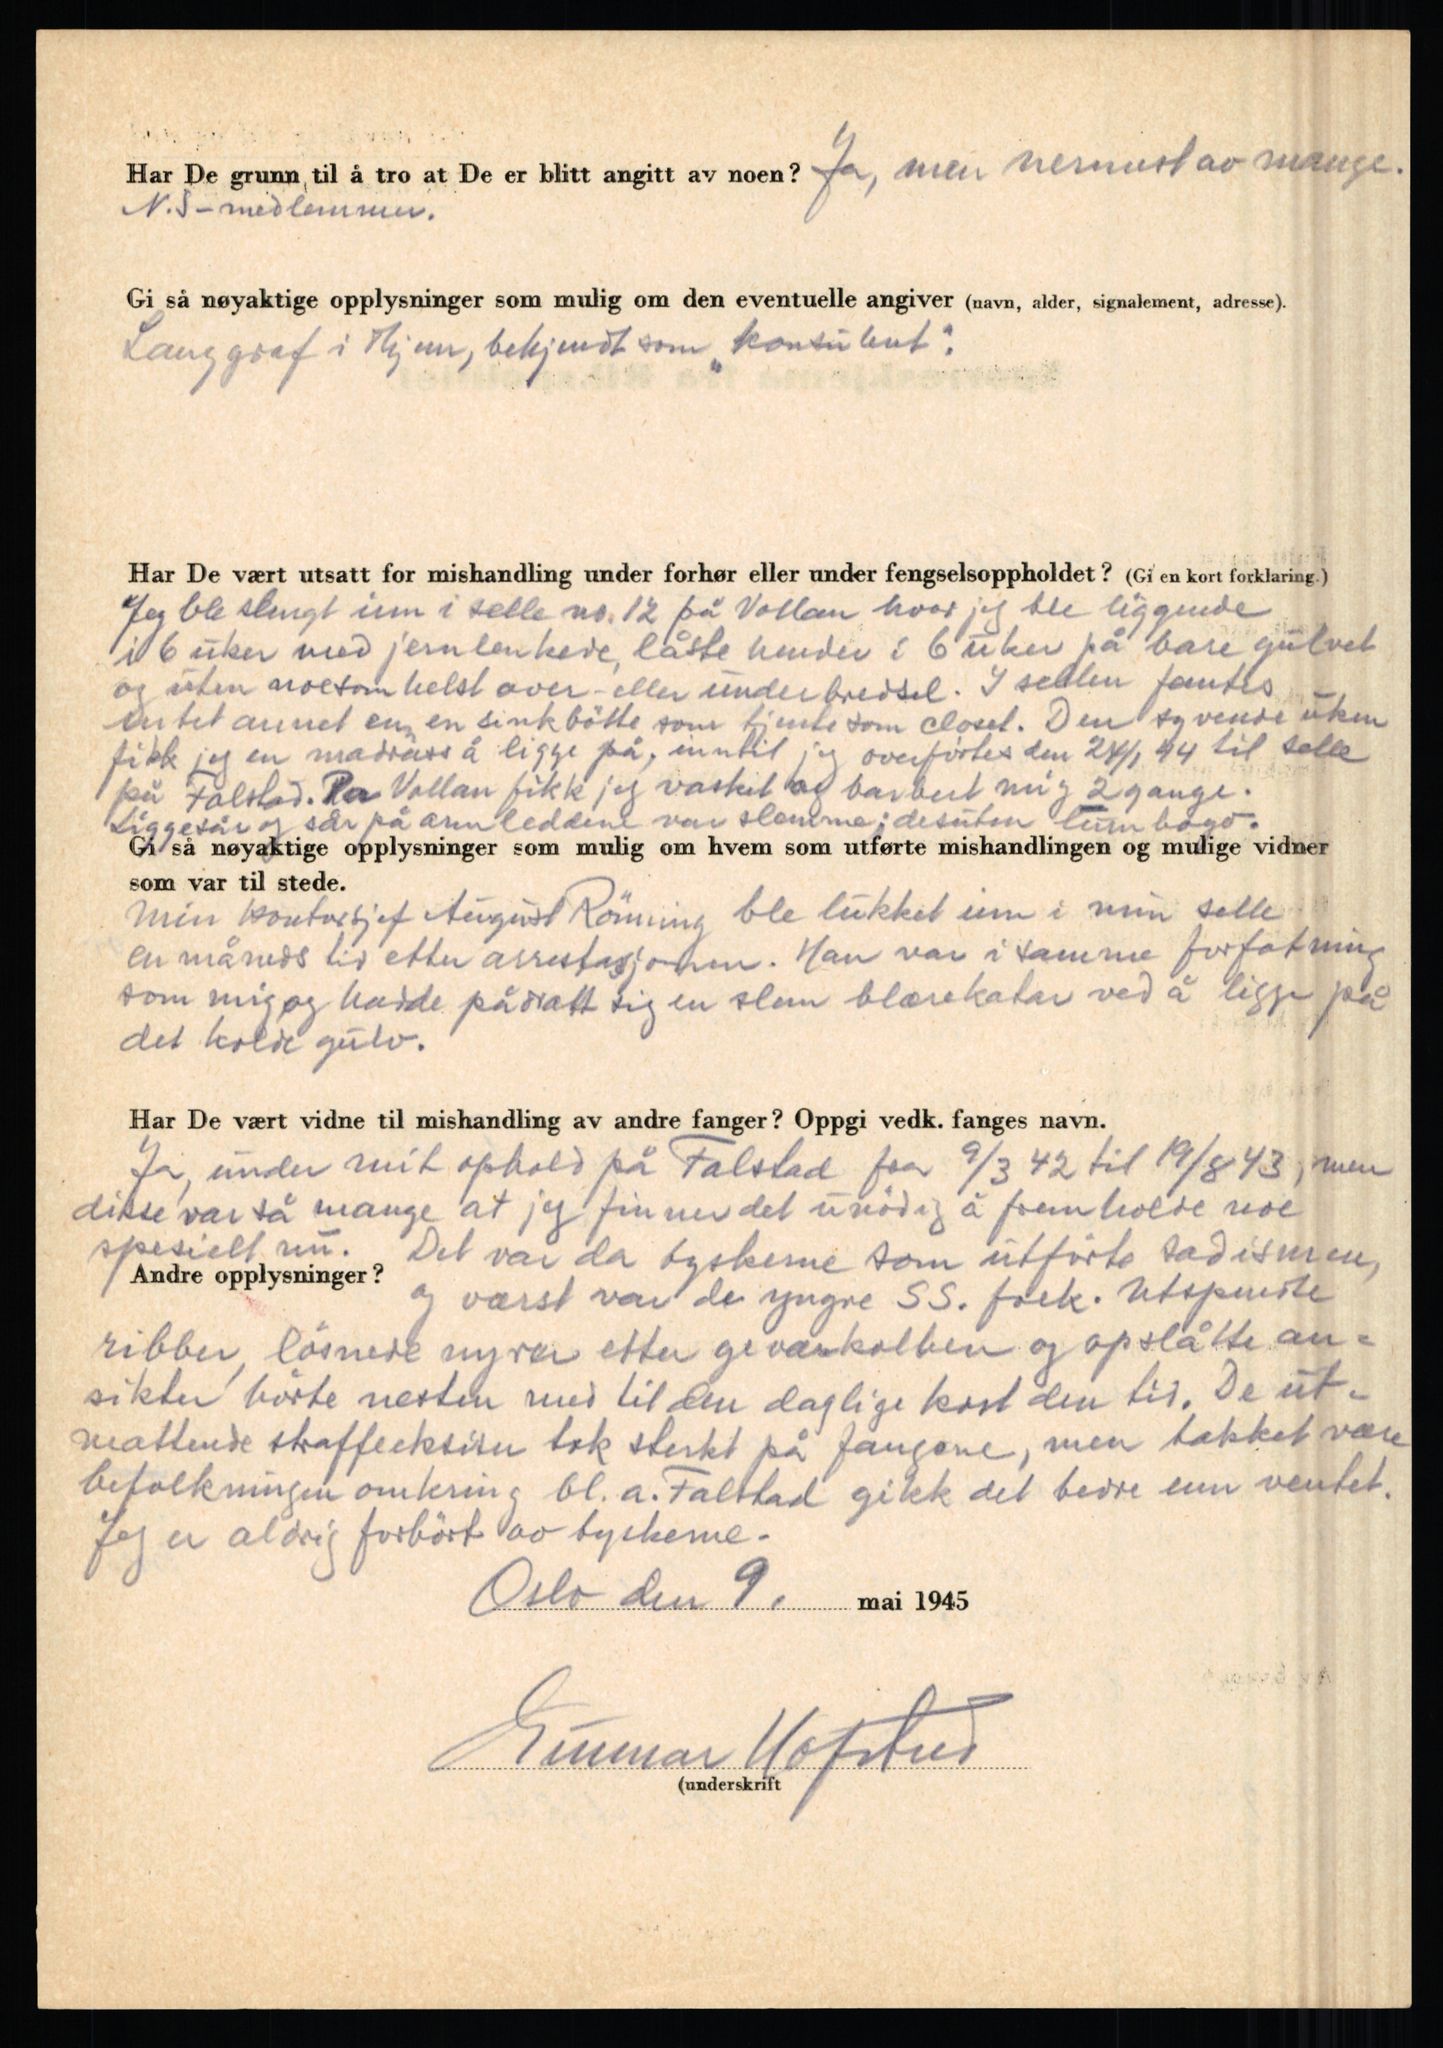 Har De grunn til å tro at De er blitt angitt av noen? Ja, men nermest av mange.
N.S-medlemmer.
Gi så nøyaktige opplysninger som mulig om den eventuelle angiver (navn, alder, signalement, adresse).
Langgraf i Hjem, bekjendt som "konsulent".
Har De vært utsatt for mishandling under forhør eller under fengselsoppholdet? (Gi en kort forklaring.)
Jeg ble slengt inn i selle no. 12 på Vollan hvor jeg ble liggende
i 6 uker med jernlenkede, låste hender i 6 uker på bare gulvet
og uten noesomhelst over- eller underbredsel. I sellen fantes
intet annet enn en sinkbötte som tjente som closet. Den syvende uken
fikk jeg en madrass å ligge på, inntil jeg overførtes den 24/1 44 til selle
på Falstad. På Vollan fikk jeg vasket og barbert mig 2 gange.
Liggesår og sår på armleddene var slemme; desuten lumbago.
Gi så nøyaktige opplysninger som mulig om hvem som utførte mishandlingen og mulige vidner
som var til stede.
Min kontorsjef August Rönning ble lukket inn i min selle
en måneds tid etter arrestasjonen. Han var i samme forfatning
som mig og hadde pådratt sig en slem blærekatar ved å ligge på
det kolde gulv.
Har De vært vidne til mishandling av andre fanger? Oppgi vedk. fanges navn.
Ja, under mit ophold på Falstad fra 9/3 42 til 19/8 43, men
disse var så mange at jeg finner det unödig å fremholde noe
spesielt nu. Det var da tyskerne som utförte sadismen,
Andre opplysninger?
og værst var de yngre SS. folk. Utspendte
ribber, lösnede nyrer etter geværkolben og opslåtte an-
sikter hörte nesten med til den daglige kost den tid. De ut-
mattende straffeeksiser tok sterkt på fangene, men takket være
befolkningen omkring bl. a. Falstad gikk det bedre enn ventet.
Jeg er aldrig forhört av tyskerne.
Oslo den 9. mai 1945
Gunnar Hofstad
(underskrift